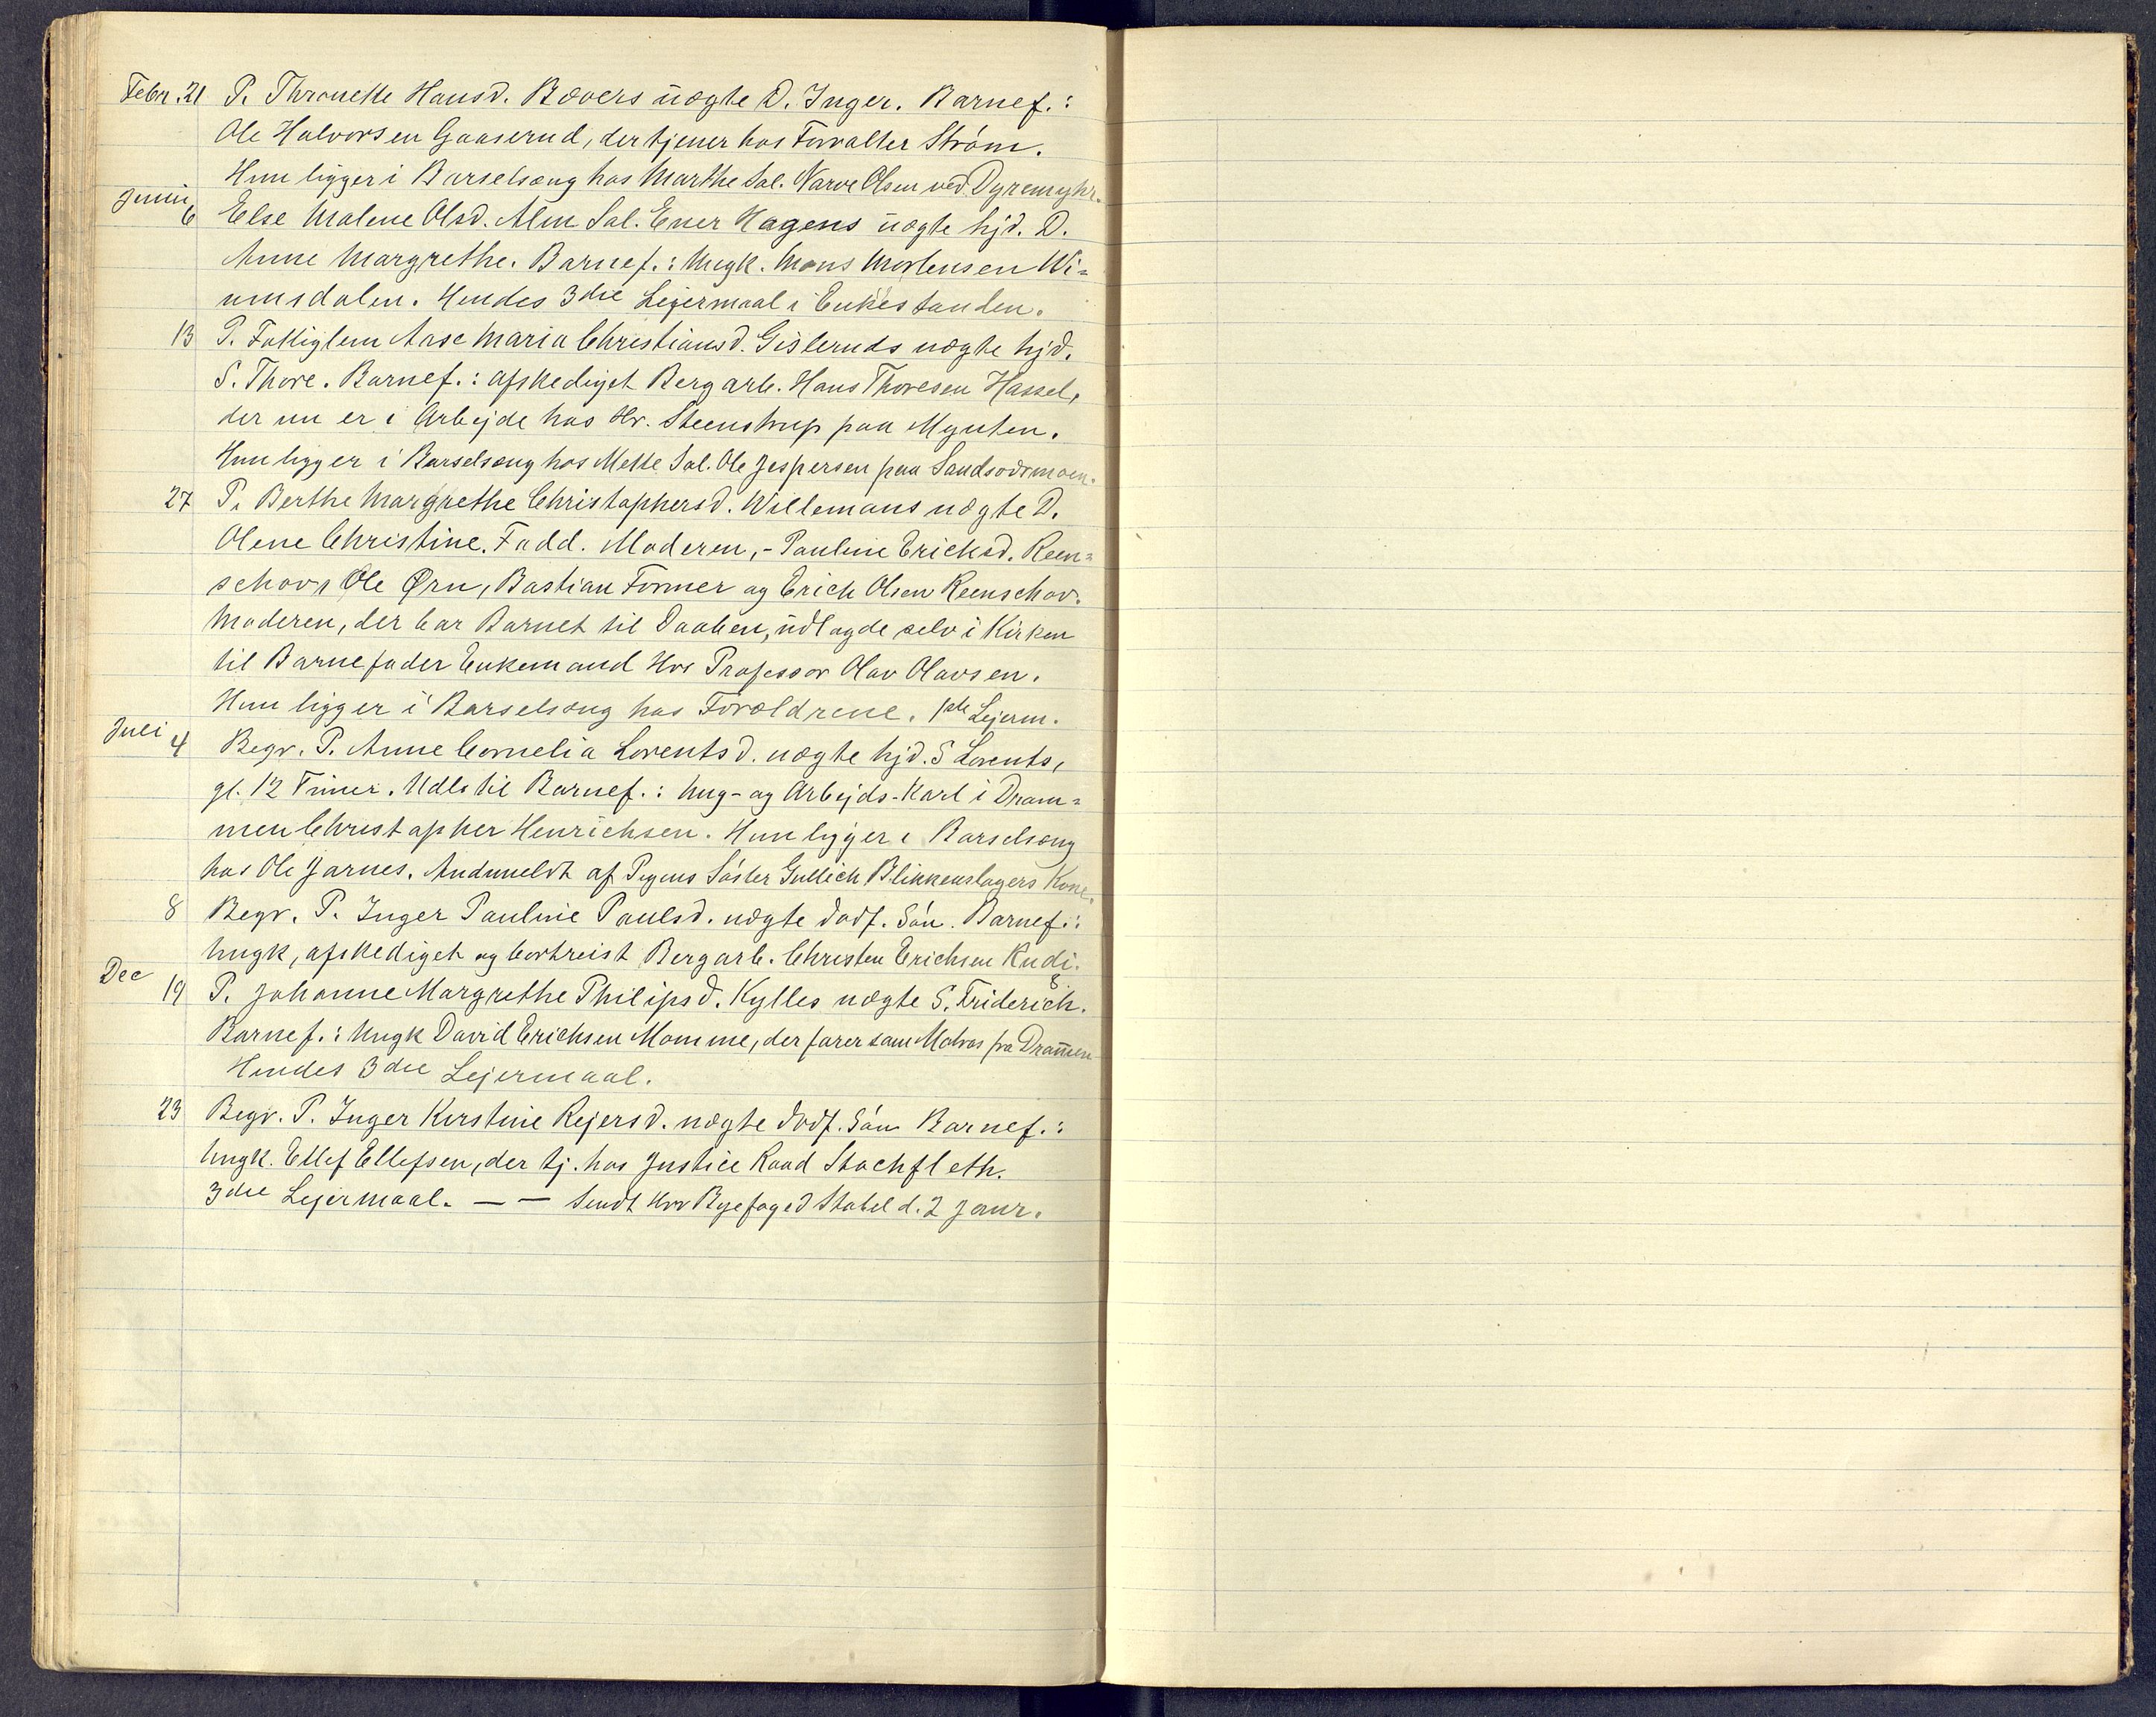 Febr. 21 P. Thronette Hansd. Bævers uægte D. Inger. Barnef.:
Ole Halvorsen Gaaserud, der tjener hos Forvalter Ström.
Hun ligger i Barselsæng hos Marthe Sal. Narve Olsen ved Dyremyhr.
Junii 6 Else Malene Olsd. Alm Sal. Ener Hagens uægte hjd. D.
Anne Margrethe. Barnef.: Ungk. Mons Mortensen Wi=
umsdalen. Hendes 3die Lejermaal i Enkestanden.
13 P. Fattiglem Aase Maria Christiansd. Gislernds uægte hjd.
S. Thore. Barnef.: afskediget Bergarb. Hans Thoresen Hassel,
der nu er i Arbejde hos Hr. Steenstrup paa Mynten.
Hun ligger i Barselsæng hos Mette Sal. Ole Jespersen paa Sandsværmoen.
27 P. Berthe Margrethe Christophersd. Willemans uægte D.
Olene Christine. Fadd. Moderen, - Pauline Ericksd. Reen=
schov, Ole Ørn, Bastian Former og Erich Olsen Reenschov.
Moderen, der bar Barnet til Daaben, udlagde selv i Kirken
til Barnefader Enkemand Hrr Professor Olav Olavsen.
Hun ligger i Barselsæng hos Forældrene. 1ste Lejerm.
Juli 4 Begr. P. Anne Cornelia Lorentsd. uægte hjd. S Lorents,
gl. 12 Timer. Udls til Barnef.: Ung- og Arbejds-Karl i Dram=
men Christopher Henrichsen. Hun ligger i Barselsæng
hos Ole Jarnes. Andmeldt af Pigens Söster Gullich Blikkenslagers Kone.
8 Begr. P. Inger Pauline Paulsd. uægte dødf. Sön. Barnef.:
Ungk, afskediget og bortreist Bergarb. Christen Erichsen Rudi.
Dec 19 P. Johanne Margrethe Philipsd. Kylles uægte S. Friderich.
Barnef.: Ungk David Erichsen Momme, der farer som Matros fra Dram̄en
Hendes 3die Lejermaal.
23 Begr. P. Inger Kirstine Rejersd. uægte dødf. Sön Barnef.:
Ungk. Ellef Ellefsen, der tj. hos Justice Raad Stochfleth.
3die Lejermaal. — — Sendt Hrr Byefoged Stabel d. 2 Janr.